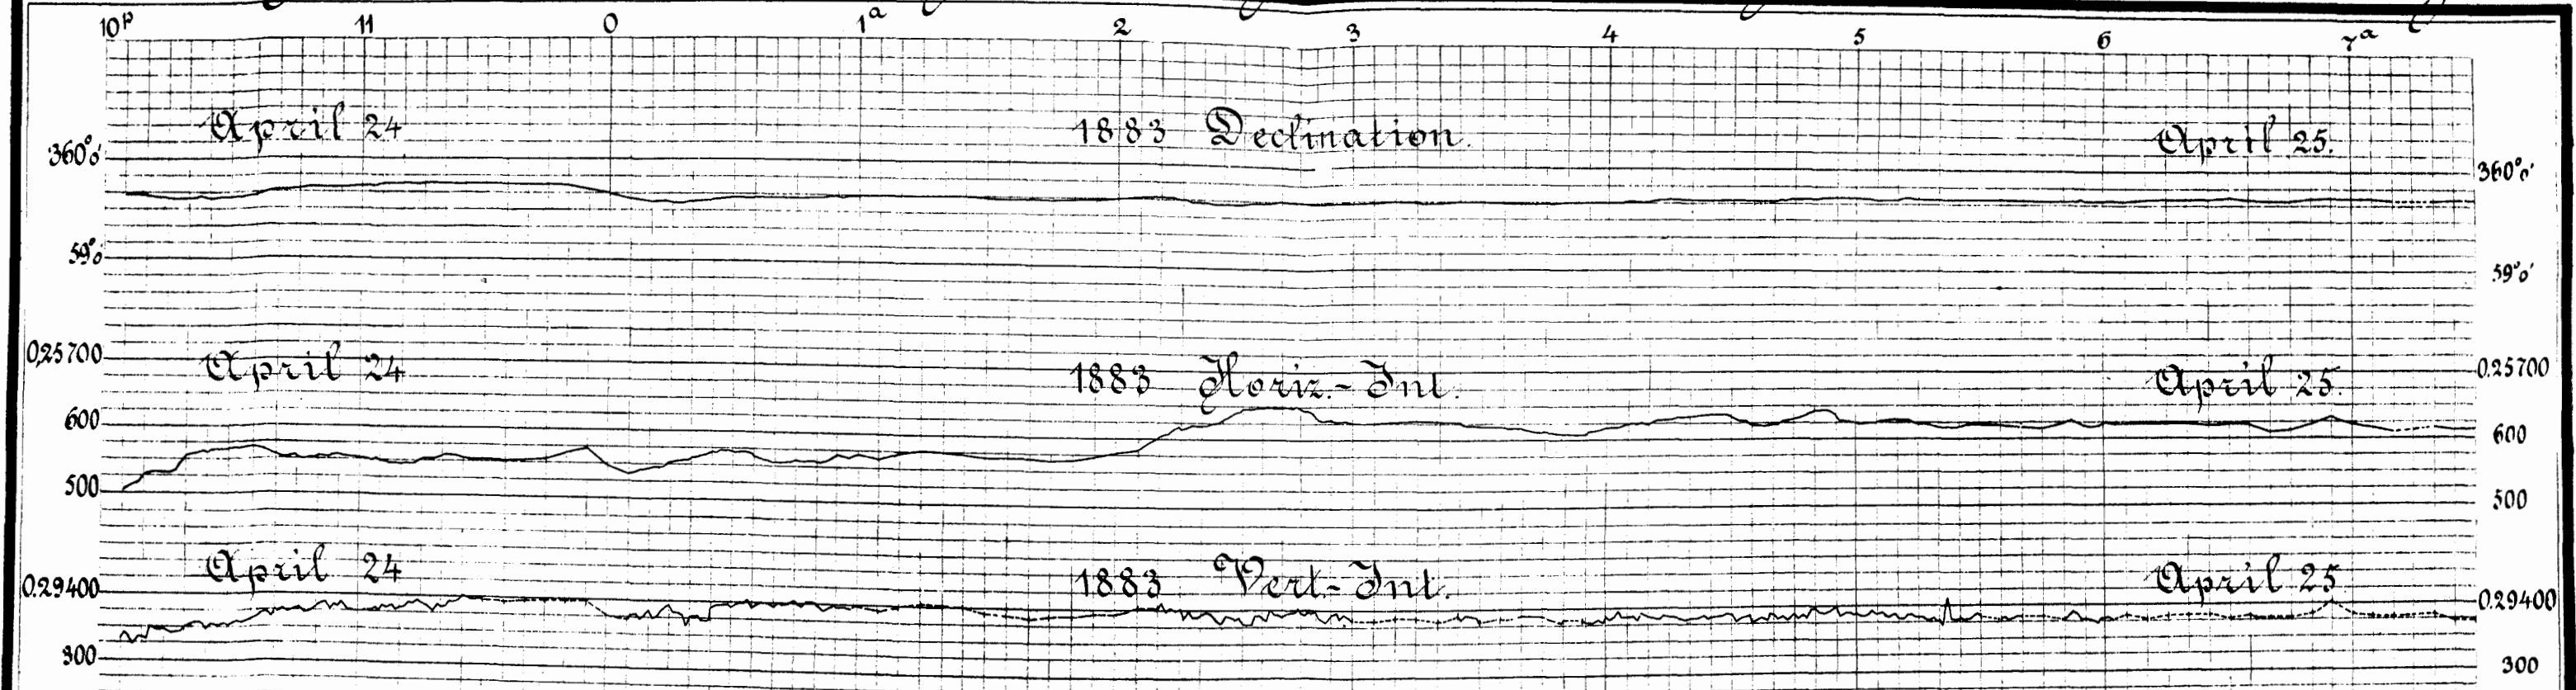 10p 11 0 1a 2 3 4 5 6 7a
April 24 1883 Declination. April 25.
360°0' 360°0'
59°0' 59°0'
0,25700 April 24 1883 Horiz.-Int. April 25. 0.25700
600 600
500 500
April 24 1883 Vert.-Int. April 25
0.29400 0.29400
300 300